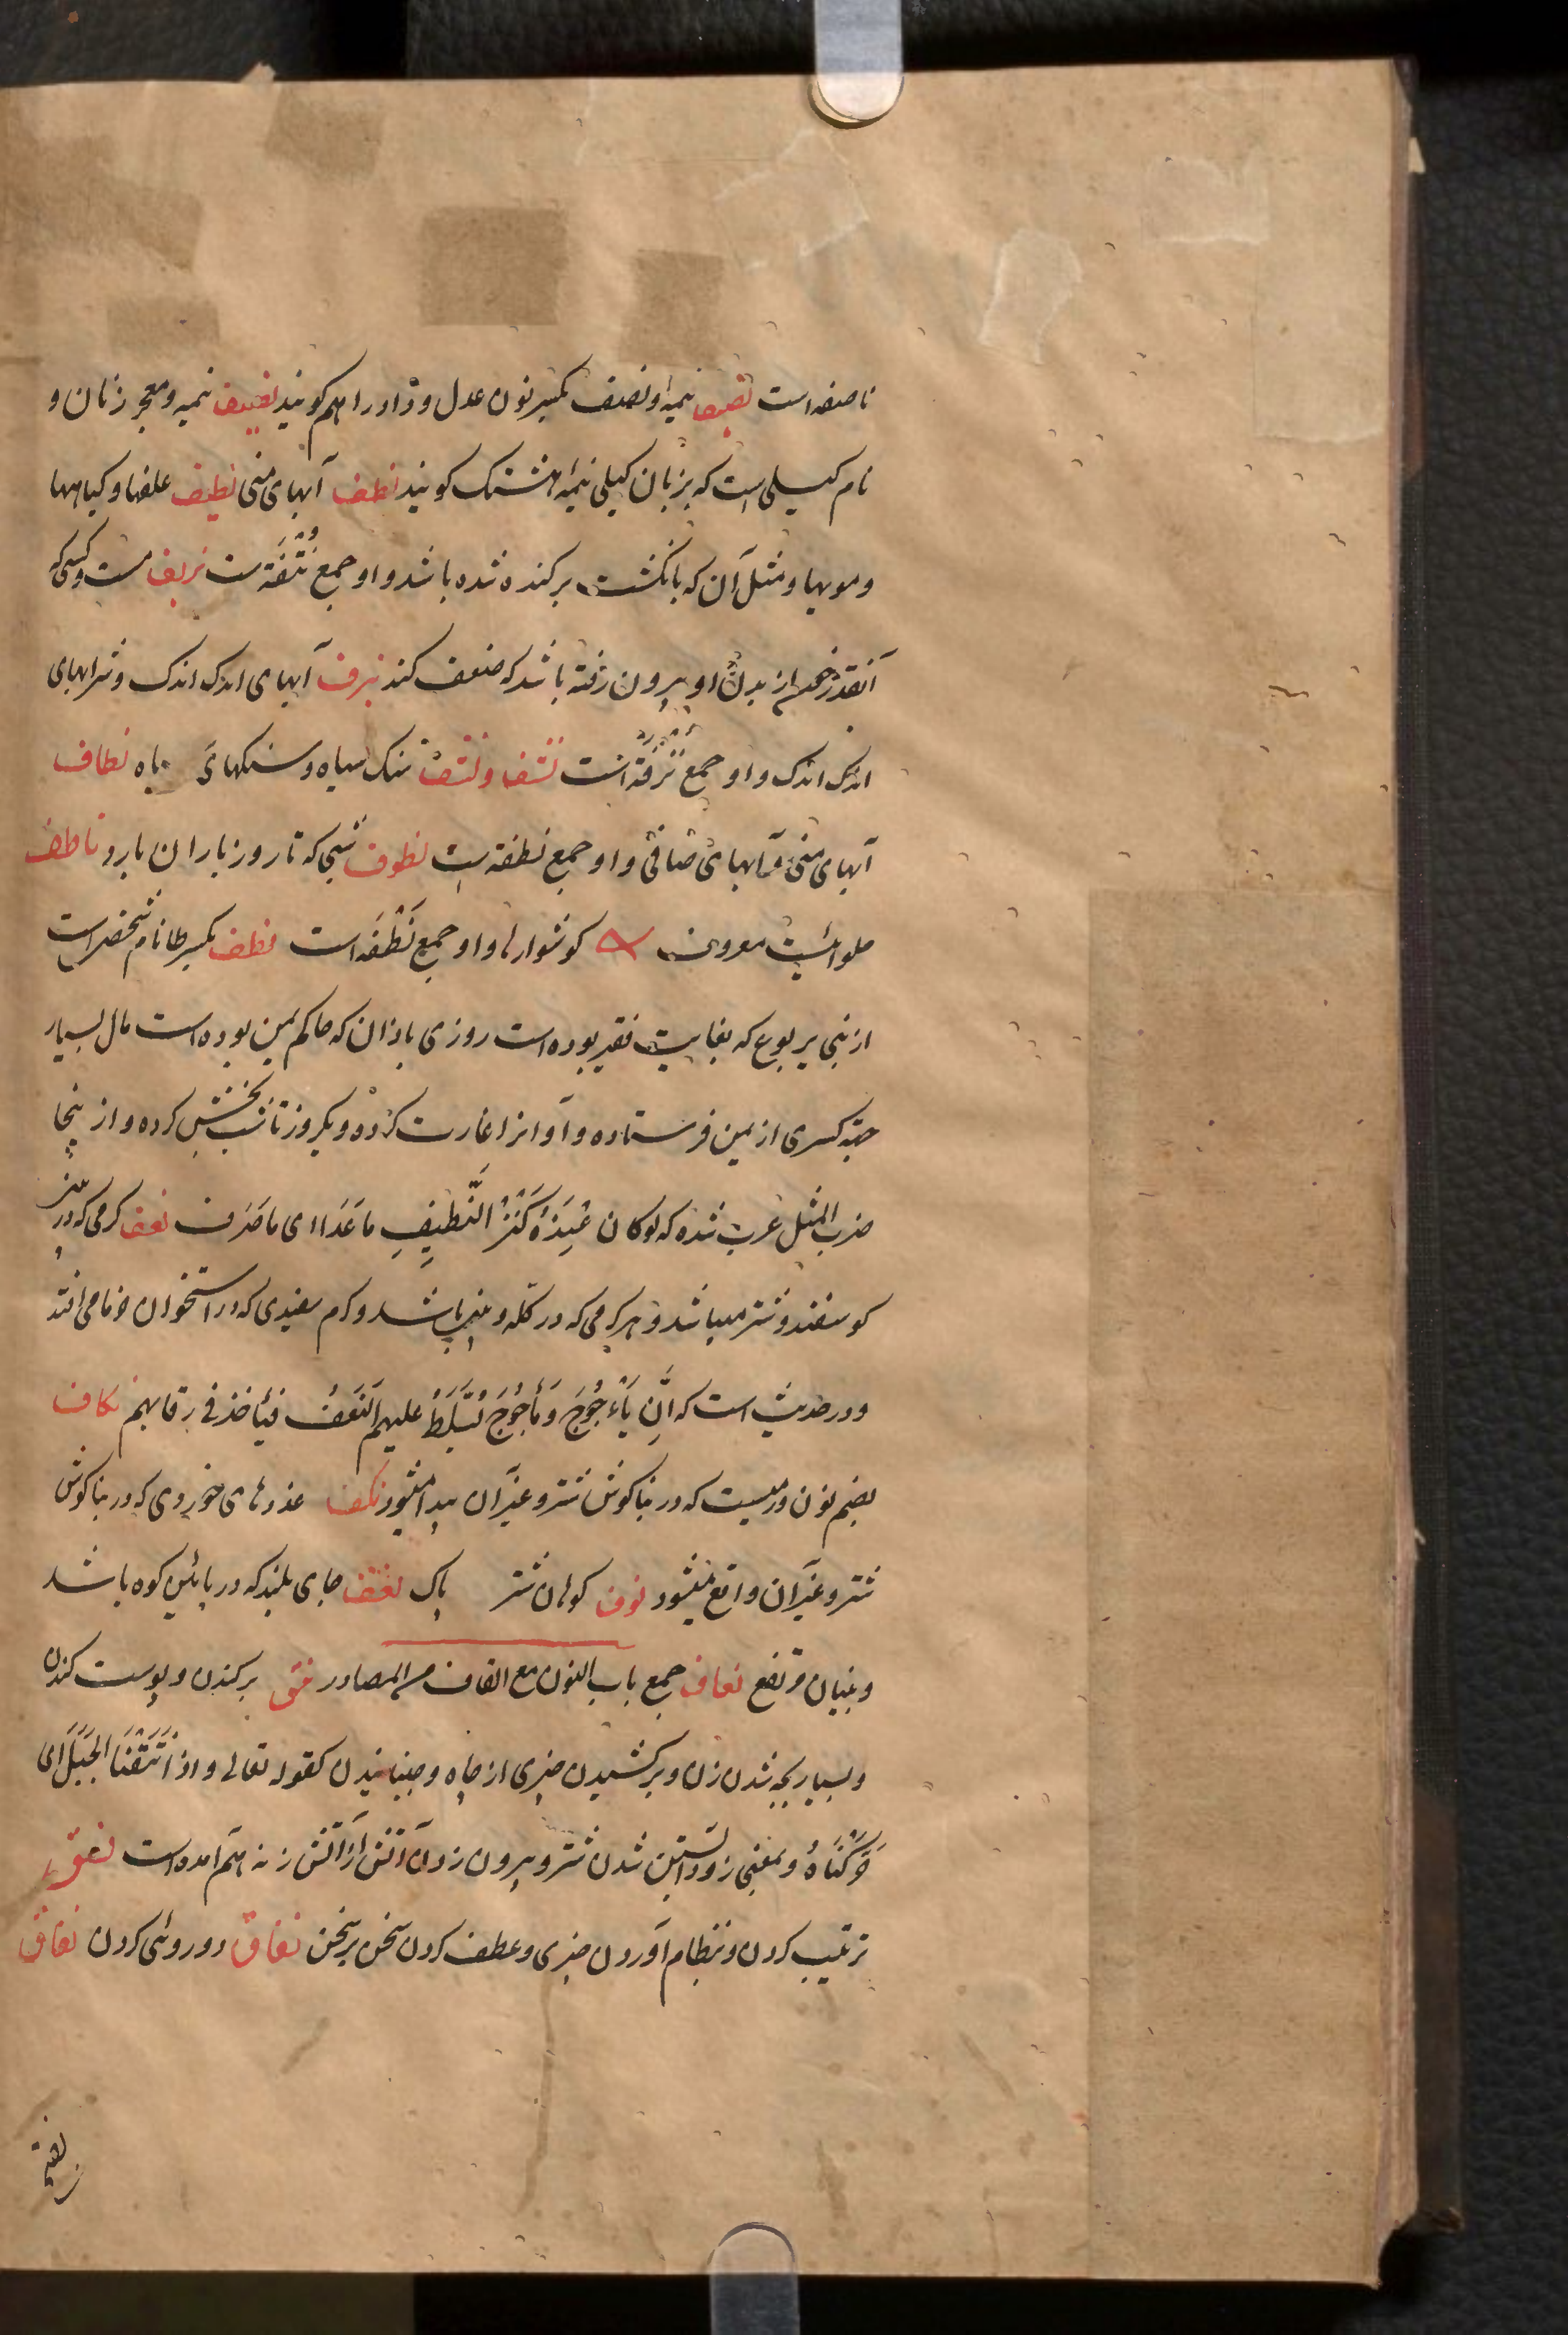 ناصفه است نصیف نیمه و نصف بکسر نون عدل و داد را هم کویند نصیف نیمه و معجر زنان و
نام کیلی است که بزبان کیلی نیمه هشتک کویند نطف آبهای منی نطیف علفها و کیاهها
و مویها و مثل آن که بانکشت برکنده شده باشد و او جمع نُتْفَة است نزیف مست و کسی که
آنقدر خون از بدن او بیرون رفته باشد که ضعف کند نزف آبهای اندک اندک و شرابهای
اندک اندک و او جمع نُزْفَة است نشف و نشف سنک سیاه و سنکهای سیاه نطاف
آبهای منی و آبهای صافی و او جمع نطفه است نطوف شبی که تا روز باران بارد ناطف
حلوائیست معروف کوشوارها و او جمع نَطْفَه است نطف بکسر طا نام شخصی است
از بنی یربوع که بغایت فقیر بوده است روزی باذان که حاکم یمن بوده است مال بسیار
جهة کسری از یمن فرستاده و او انرا غارت کرده و یکروز تا شب بخشش کرده و از ینجا
ضرب المثل عرب شده که لوکان عِنِدَهُ کَنْزُ النَّطِیفِ ما عَدَا ای ما صَرَف نغف کرمی که در بینی
کوسفند و شتر میباشد و هر کرمی که در کله و بینی باشد و کرم سفیدی که در استخوان خرما می افتد
و در حدیث است که اِنَّ یَأْجُوجَ وَ مَأْجُوجَ نُسَلِّطُ علیهم النَغَفُ فیأخذ فی رقابهم نکاف
بضم نون ورمیست که در بناکوش شتر و غیر آن پیدا میشود نکف غدرهای خوردی که در بناکوش
شتر و غیر آن واقع میشود نوف کوهان شتر پاک نعف جای بلند که در پائین کوه باشد
و بنیان مرتفع نعاف جمع باب النون مع القاف من المصادر نتق برکندن و پوست کندن
و بسیار بچه شدن زن و برکشیدن چیزی از چاه و جنبانیدن کقوله تعالی و اذ نَتَقْنَا الجَبَلَ ای
حَرَّکْنَاهُ و بمعنی زود آبستن شدن شتر و بیرون زدن آتش از آتش زنه هم آمده است نسق
ترتیب کردن و بنظام آوردن چیزی و عطف کردن سخن بر سخن نفاق دوروئی کردن نعاق